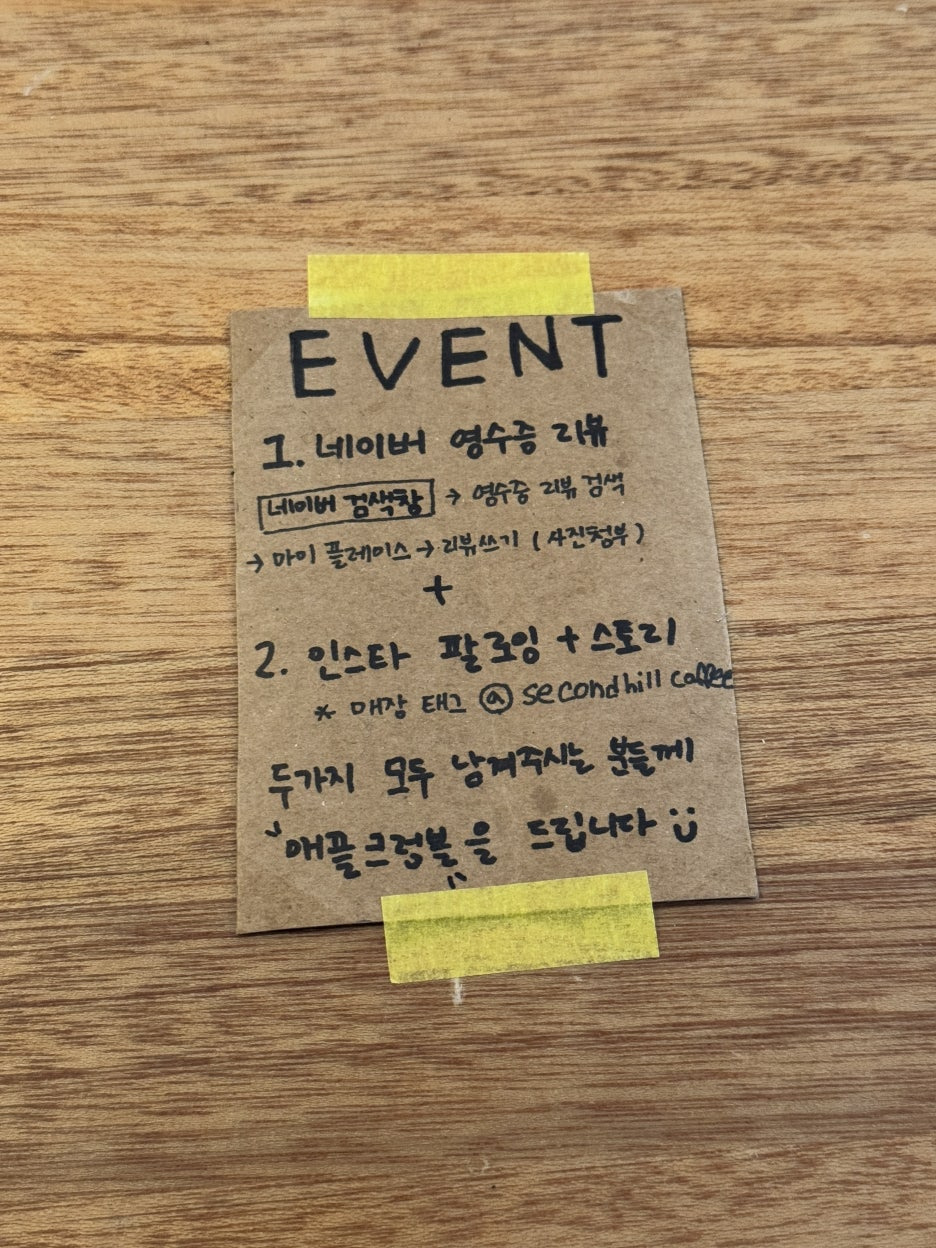 EVENT
1. 네이버 영수증 리뷰
네이버 검색창 → 영수증 리뷰 검색
→ 마이 플레이스 → 리뷰쓰기 (사진첨부)
+
2. 인스타 팔로잉 + 스토리
* 매장 태그 @ secondhill coffee
두가지 모두 남겨주시는 분들께
"애플크럼블"을 드립니다 :)